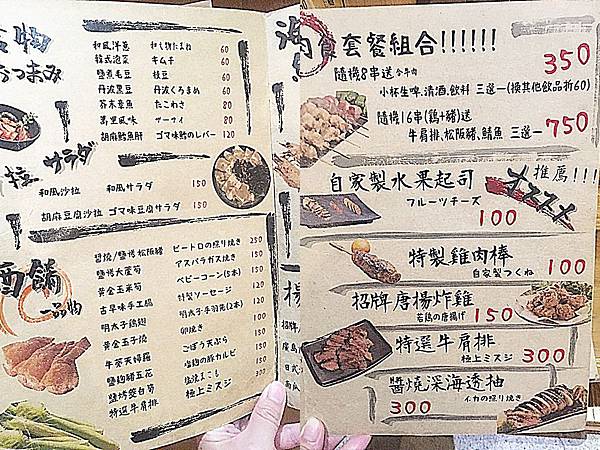 おつまみ
和風洋蔥 和し物たまね 60
韓式泡菜 キムチ 60
鹽煮毛豆 枝豆 60
丹波黑豆 丹波くろまめ 60
芥末章魚 たこわさ 80
萬里風味 ザーサイ 80
胡麻鱈魚肝 ゴマ味鱈のレバー 120
サラダ
和風沙拉 和風サラダ 150
胡麻豆腐沙拉 ゴマ味豆腐サラダ 150
酒舖
一品物
醬燒/鹽烤松阪豬 ピートロの照り焼き 250
鹽烤大蘆筍 アスパラガス焼き 150
黃金玉米筍 ベビーコーン(5本) 150
古早味手工腸 特製ソーセージ 120
明太子雞翅 明太子手羽先(2本)
黃金玉子燒 卵焼き 100
牛蒡天婦羅 ごぼう天ぷら
鹽麴豬五花 塩麹の豚カルビ 150
鹽烤茭白筍 塩焼まこも
特選牛肩排 極上ミスジ 300
套餐組合!!!!!!
隨機8串送 含牛肉 350
小杯生啤、清酒、飲料 三選一(換其他飲品折60)
隨機16串(鶏+豬)送
牛肩排、松阪豬、鯖魚 三選一 750
自家製水果起司 推薦!!!
フルーツチーズ オススメ
100
特製雞肉棒
自家製つくね 100
招牌唐揚炸雞
若鶏の唐揚げ 150
特選牛肩排
極上ミスジ 300
醬燒深海透抽
300 イカの照り焼き